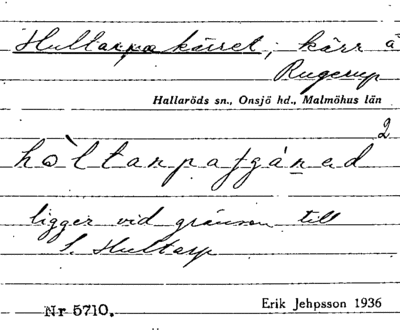 Hultarpakärret, kärr å
Rugerup
Hallaröds sn., Onsjö hd., Malmöhus län
2
ligger vid gränsen till
S. Hultarp
Nr 5710.
Erik Jehpsson 1936